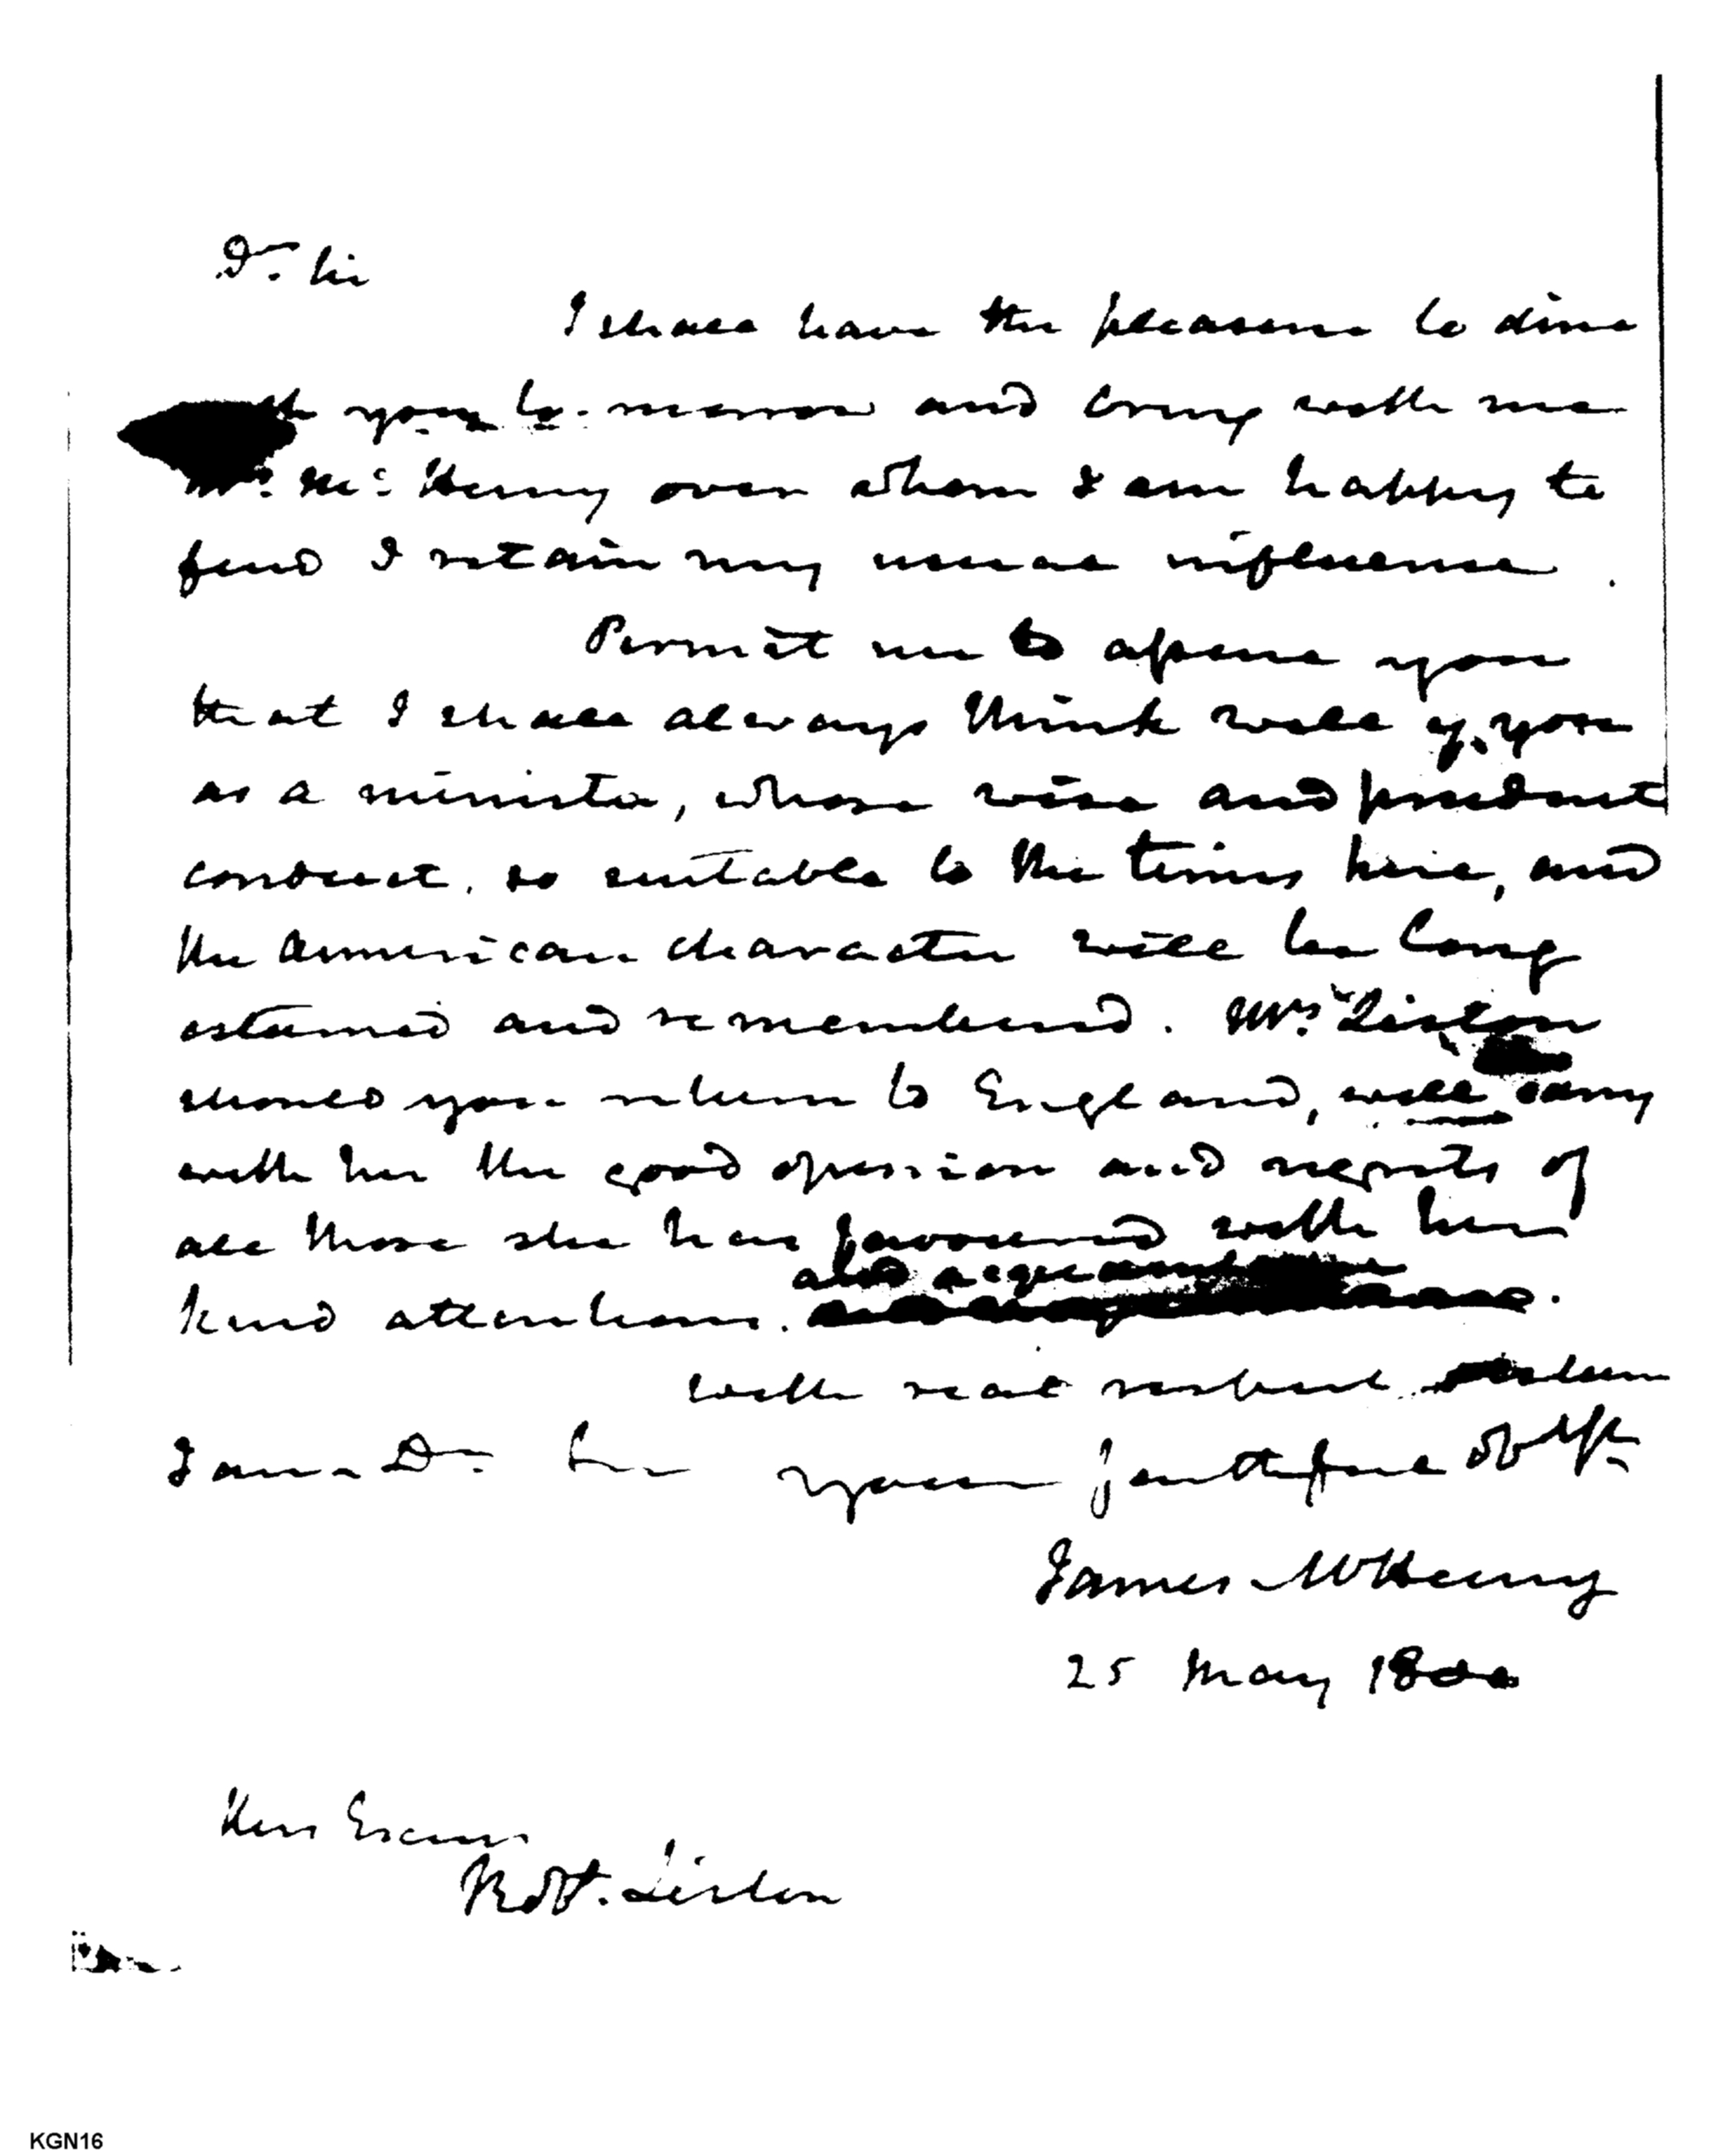 Dr. Sir
I shall have the pleasure to dine
you to-morrow and bring with me
Mrs. McHenry over whom I am happy to
find I retain my usual influence.
Permit me to assure you
that I shall always think well of you
as a minister, whose wise and prudent
conduct, so suitable to the times here, and
the American character will be long
esteemed and remembered. Mrs. Liston
should you return to England, will carry
with her the good opinion and regrets of
all those she has favoured with her
also acquaintance
kind attentions.
With real respect
I am Dr. Sir your faithful obt. st.
James McHenry
25 May 1800
Robt. Liston
KGN16